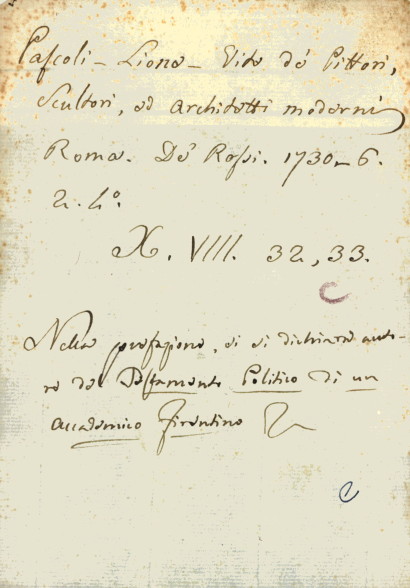 Pascoli - Lione - Vite de' Pittori,
Scultori, ed Architetti moderni
Roma. De' Rossi. 1730-6.
2. 4.°
X. VIII. 32, 33.
C
Nella prefazione, ei si dichiara auto-
re del Testamento Politico di un
accademico fiorentino